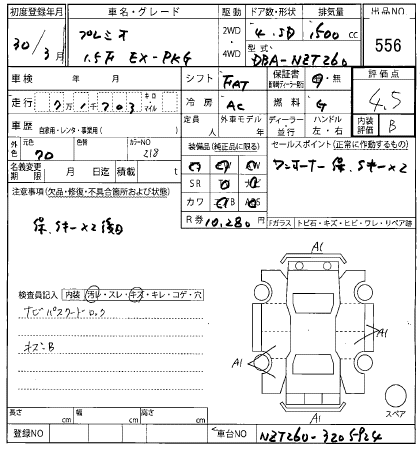 初度登録年月 車名・グレード 駆動 ドア数・形状 排気量 出品NO
30/3月 プレミオ 2WD 4.SD 1500cc 556
1.5万 EX-PKG 4WD 型式 DBA-NZT260
車検 年 月 シフト FAT 保証書 有・無 評価点
走行 771703 キロ・マイル 冷房 AC 燃料 G 4.5
車歴 自家用・レンタ・事業用( ) 定員 人 外車モデル 年 ディーラー・並行 ハンドル 左・右 内装評価 B
外色 元色 70 色替 カラーNO 218 装備品(純正品に限る) セールスポイント(正常に作動するもの)
名義変更期限 月 日迄 積載 t ワンオーナー 保.Sキー×2
注意事項(欠品・修復・不具合箇所および状態) SR
保.Sキー×2後日 カワ
R券 10,280円 Fガラス トビ石・キズ・ヒビ・ワレ・リペア跡
A1
検査員記入 内装 汚レ・スレ・キズ・キレ・コゲ・穴
ナビパスワードロック
ネズB
A1 A1
A1
スペア
長さ cm 幅 cm 高さ cm
登録NO 車台NO NZT260-3205924